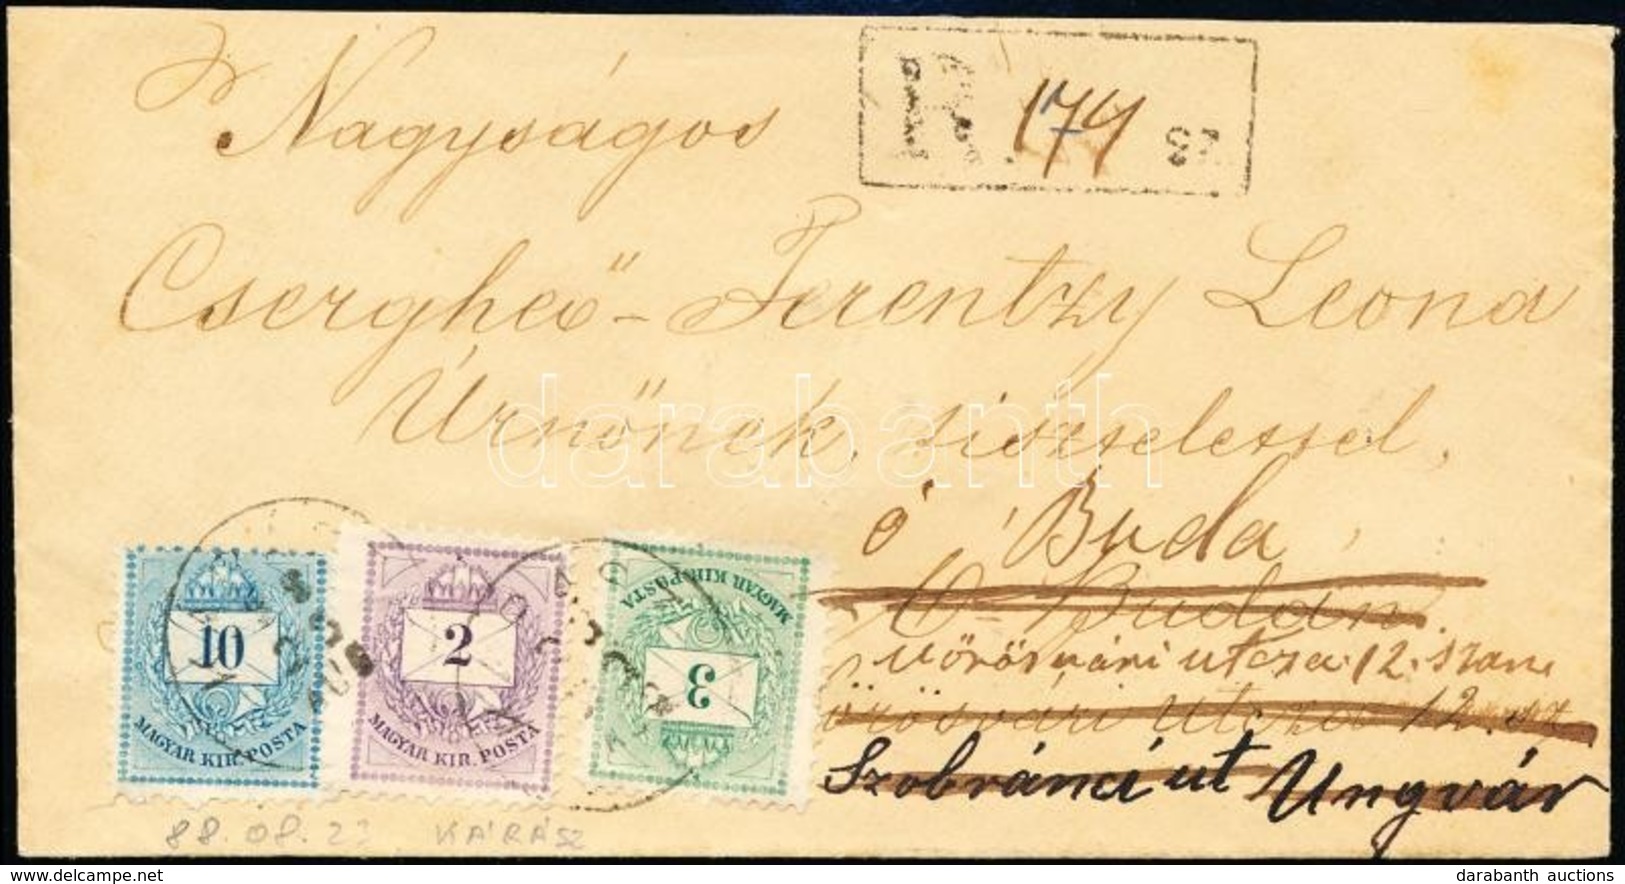 Nagyságos
R 179
Csergheő-Ferentzy Leona
Úrnőnek, tisztelettel,
ó Buda
Ó-Budán
Vörösvári utcza 12. szám
Vörösvári utcza 12. sz
Szobránci ut Ungvár
10
MAGYAR KIR. POSTA
2
MAGYAR KIR. POSTA
3
MAGYAR KIR. POSTA
88.08.2 KÁRÁSZ
darabanth
delcampe.net
darabanth auctions